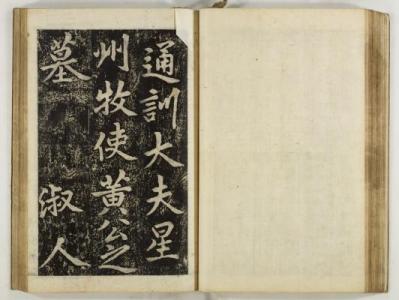 通訓大夫星
州牧使黃公之
墓　淑人